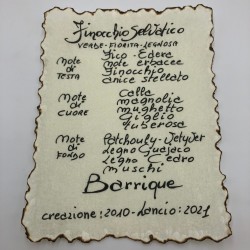 Finocchio Selvatico
VERDE-FIORITA-LEGNOSA
NOTE DI TESTA
Fico - Edera
Note erbacee
Finocchio
anice stellato
NOTE DI CUORE
Calla
magnolia
mughetto
Giglio
tuberosa
NOTE DI FONDO
Patchouly-Vetyver
Legno Guajaco
Legno Cedro
muschi
Barrique
creazione:2010-Lancio:2021